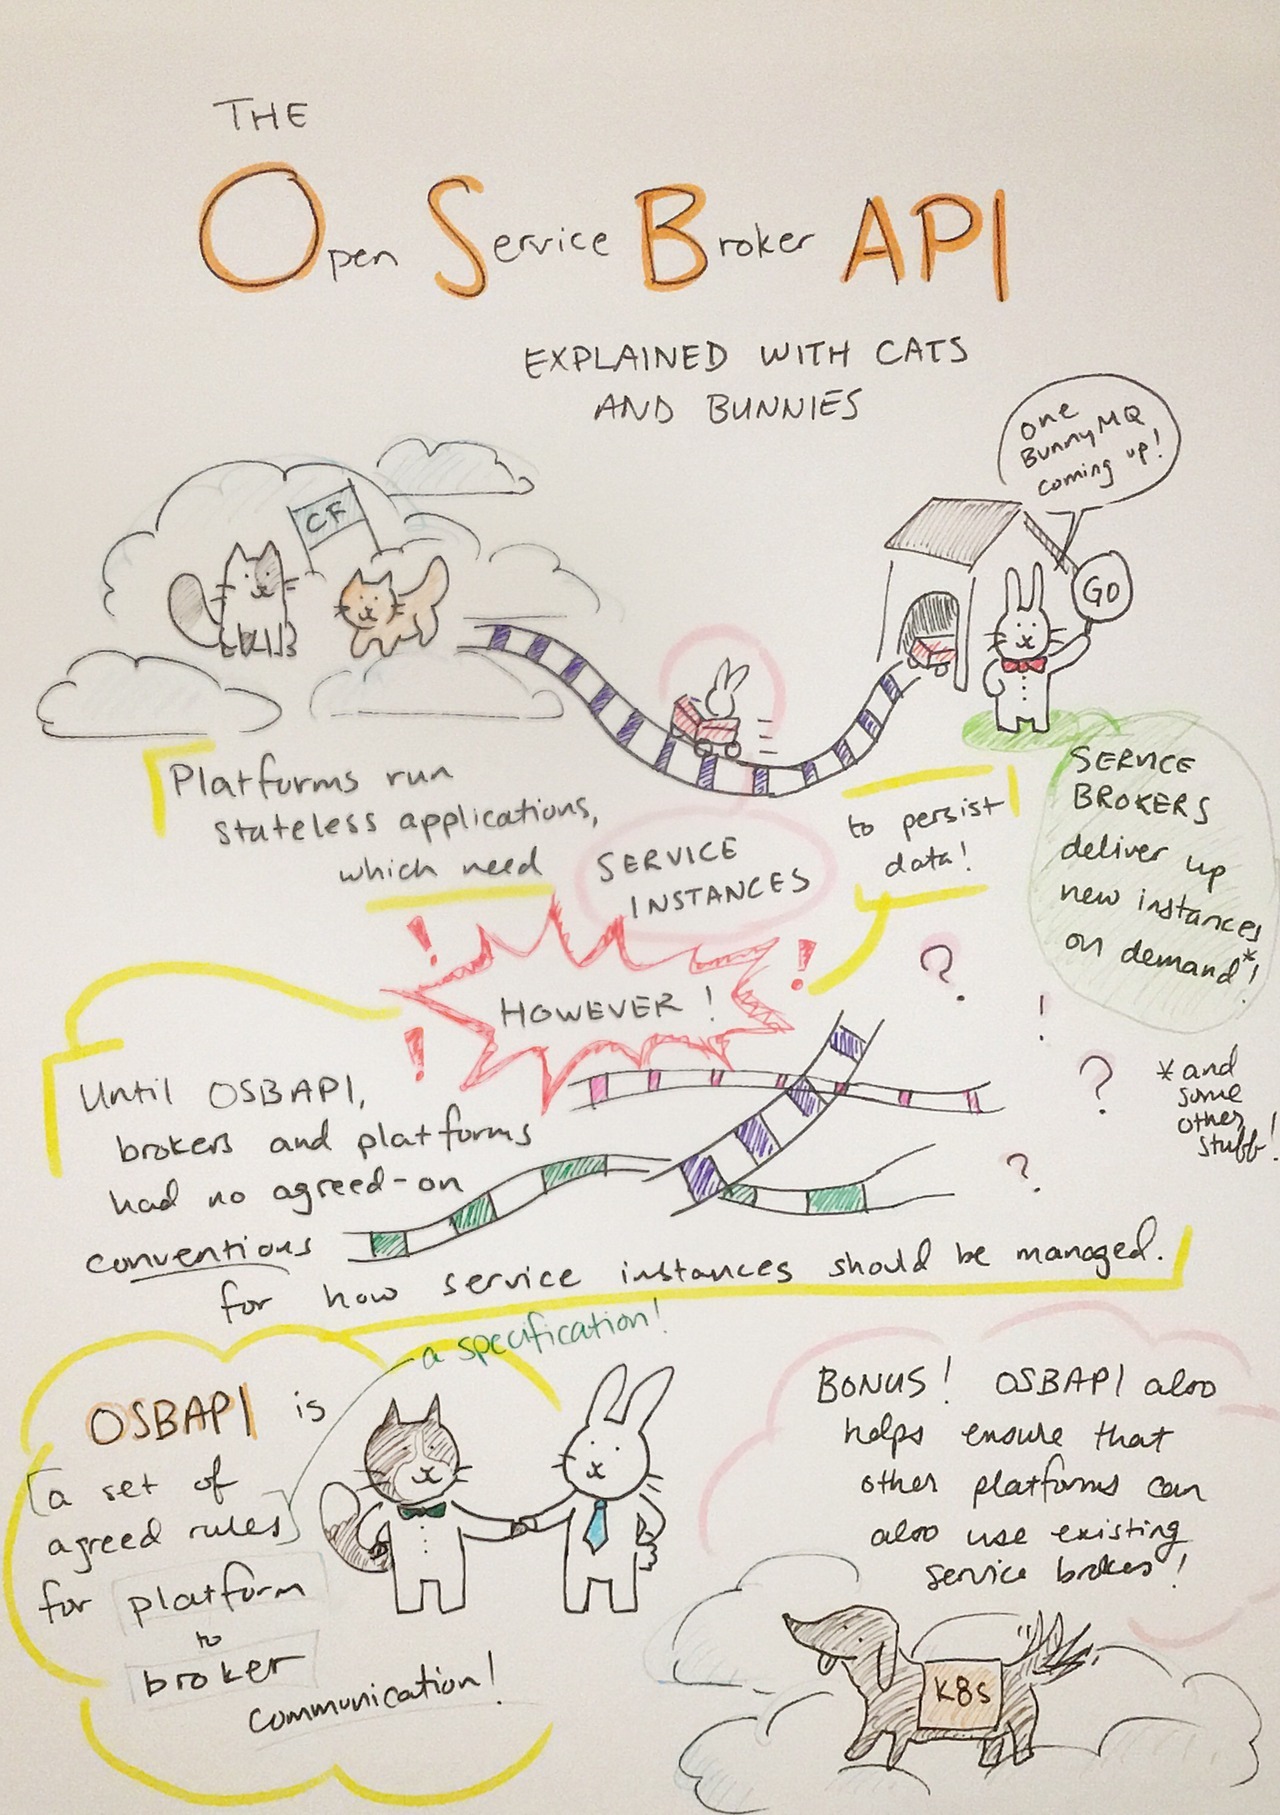 THE
Open Service Broker API
EXPLAINED WITH CATS
AND BUNNIES
one
BunnyMQ
coming up!
CF
GO
Platforms run
stateless applications,
which need
SERVICE
INSTANCES
to persist
data!
SERVICE
BROKERS
deliver up
new instances
on demand*!
*and
some
other
stuff!
HOWEVER!
Until OSBAPI,
brokers and platforms
had no agreed-on
conventions
for how service instances should be managed.
a specification!
OSBAPI is
[a set of
agreed rules]
for platform
to
broker
communication!
BONUS! OSBAPI also
helps ensure that
other platforms can
also use existing
service brokers!
K8s